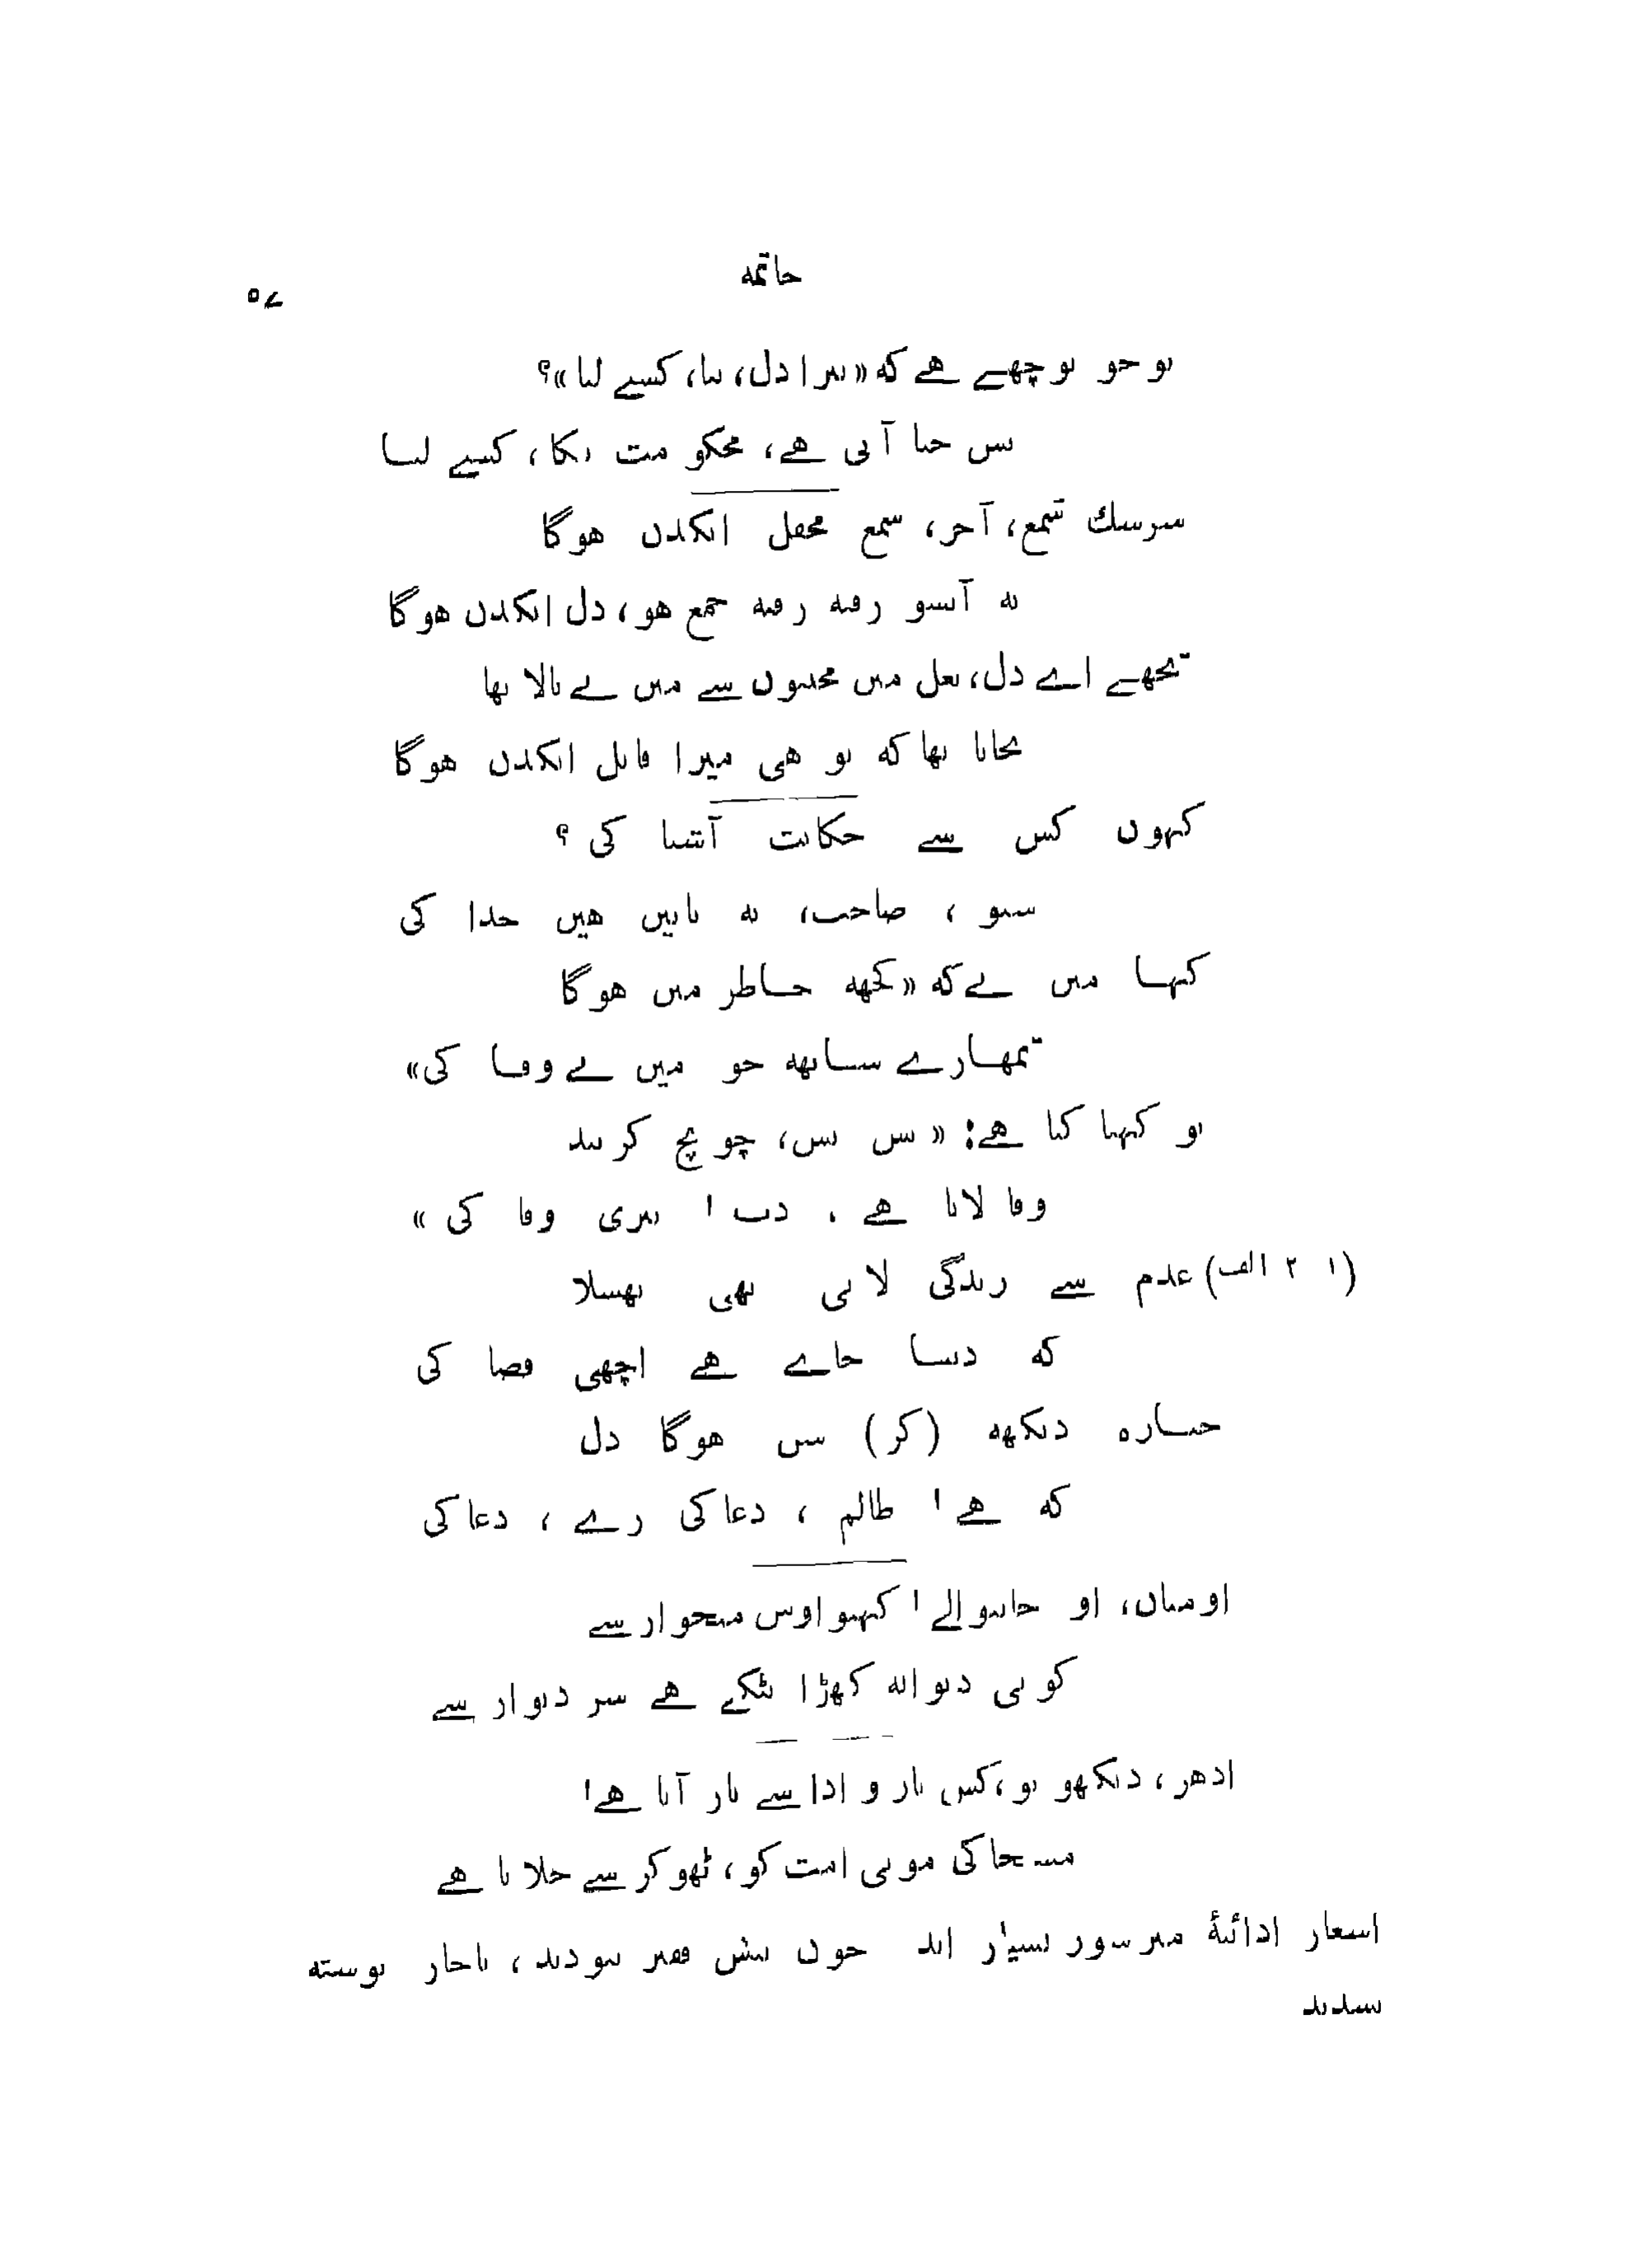 خاتمه
۵۷
تو جو پوچھے ھے که «تیرا دل، بتا، کسنے لیا»؟
بس حیا آتی ھے، مجکو مت بکا، کسنے لیا
سرشك شمع، آخر، شمع محفل ایکدن ھوگا
یه آنسو رفته رفته جمع ھو، دل ایکدن ھوگا
تجھے اے دل، بغل میں محنتوں سے میں نے پالا تھا
نجانا تھا که تو ھی میرا قاتل ایکدن ھوگا
کہوں کس سے حکایت آشنا کی ؟
سنو ، صاحب، یه باتیں ھیں خدا کی
کہا میں نے که «کچھه خاطر میں ھوگا
تمھارے ساتھه جو میں نے وفا کی»
تو کہتا کیا ھے: «بس بس، چونچ کر بند
وفا لایا ھے . دت ! تیری وفا کی »
(۱۲ الف) عدم سے زندگی لائی تھی پھسلا
که دنیا جائے ھے اچھی فضا کی
جنازه دیکھه (کر) سن ھوگا دل
که ھے ! ظالم ، دغا کی رے ، دغا کی
او میاں، او جانیوالے ! کہیو اوس میخوار سے
کوئی دیوانه کھڑا پٹکے ھے سر دیوار سے
ادھر، دیکھو تو، کس ناز و ادا سے یار آتا ھے!
مسیحا کی موئی امت کو، ٹھوکر سے جلاتا ھے
اشعار ادائیۀ میر سوز بسیار اند چون پیش فقیر نبودند ، ناچار نوشته
نشدند